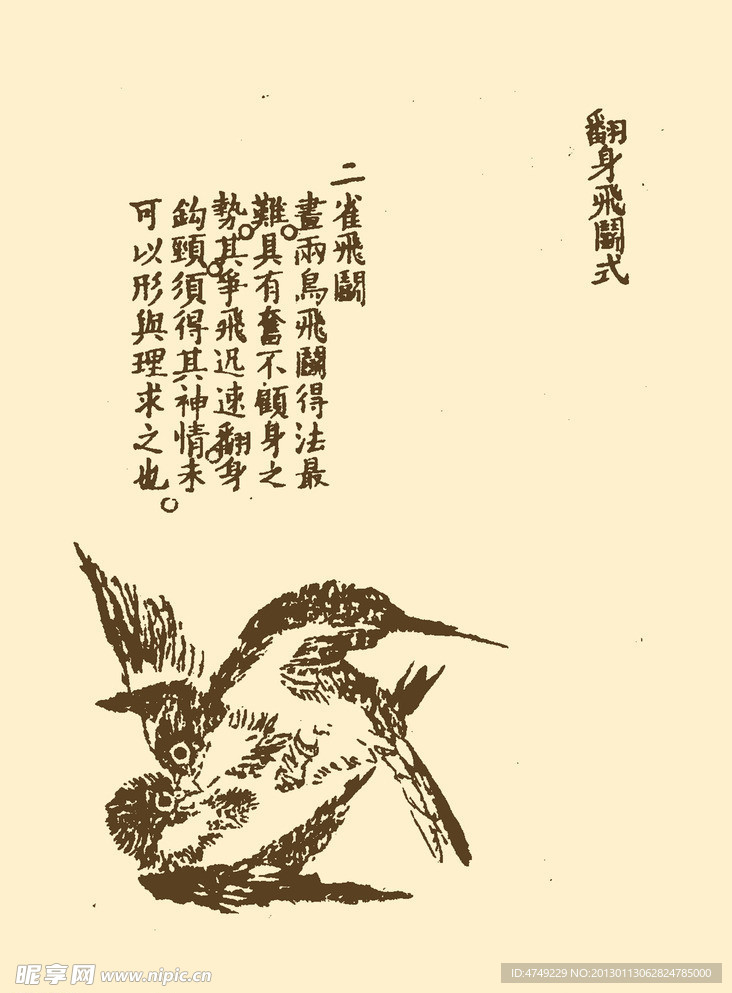 翻身飛鬪式
二雀飛鬪
畫兩鳥飛鬪得法最
難具有奮不顧身之
勢其爭飛迅速翻身
鈎頸須得其神情未
可以形與理求之也。
昵享网 www.nipic.cn
ID:4749229 NO:20130113062824785000